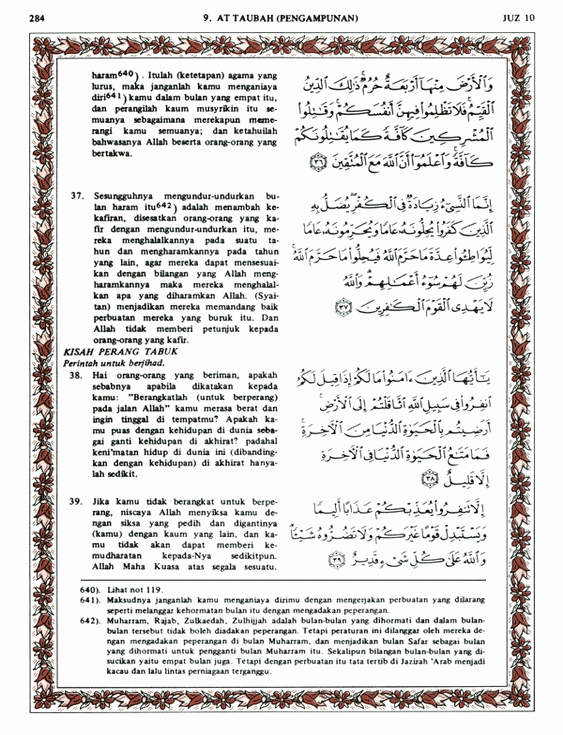 284
9. AT TAUBAH (PENGAMPUNAN)
JUZ 10
haram640) . Itulah (ketetapan) agama yang
lurus, maka janganlah kamu menganiaya
diri641) kamu dalam bulan yang empat itu,
dan perangilah kaum musyrikin itu se-
muanya sebagaimana merekapun meme-
rangi kamu semuanya; dan ketahuilah
bahwasanya Allah beserta orang-orang yang
bertakwa.
وَٱلْأَرْضَ مِنْهَآ أَرْبَعَةٌ حُرُمٌ ذَٰلِكَ ٱلدِّينُ
ٱلْقَيِّمُ فَلَا تَظْلِمُوا۟ فِيهِنَّ أَنفُسَكُمْ وَقَٰتِلُوا۟
ٱلْمُشْرِكِينَ كَآفَّةً كَمَا يُقَٰتِلُونَكُمْ
كَآفَّةً وَٱعْلَمُوٓا۟ أَنَّ ٱللَّهَ مَعَ ٱلْمُتَّقِينَ ﴿٣٦﴾
37. Sesungguhnya mengundur-undurkan bu-
lan haram itu642) adalah menambah ke-
kafiran, disesatkan orang-orang yang ka-
fir dengan mengundur-undurkan itu, me-
reka menghalalkannya pada suatu ta-
hun dan mengharamkannya pada tahun
yang lain, agar mereka dapat mensesuai-
kan dengan bilangan yang Allah meng-
haramkannya maka mereka menghalal-
kan apa yang diharamkan Allah. (Syai-
tan) menjadikan mereka memandang baik
perbuatan mereka yang buruk itu. Dan
Allah tidak memberi petunjuk kepada
orang-orang yang kafir.
إِنَّمَا ٱلنَّسِىٓءُ زِيَادَةٌ فِى ٱلْكُفْرِ يُضَلُّ بِهِ
ٱلَّذِينَ كَفَرُوا۟ يُحِلُّونَهُۥ عَامًا وَيُحَرِّمُونَهُۥ عَامًا
لِّيُوَاطِـُٔوا۟ عِدَّةَ مَا حَرَّمَ ٱللَّهُ فَيُحِلُّوا۟ مَا حَرَّمَ ٱللَّهُ
زُيِّنَ لَهُمْ سُوٓءُ أَعْمَٰلِهِمْ وَٱللَّهُ
لَا يَهْدِى ٱلْقَوْمَ ٱلْكَٰفِرِينَ ﴿٣٧﴾
KISAH PERANG TABUK
Perintah untuk berjihad.
38. Hai orang-orang yang beriman, apakah
sebabnya apabila dikatakan kepada
kamu: "Berangkatlah (untuk berperang)
pada jalan Allah" kamu merasa berat dan
ingin tinggal di tempatmu? Apakah ka-
mu puas dengan kehidupan di dunia seba-
gai ganti kehidupan di akhirat? padahal
keni'matan hidup di dunia ini (dibanding-
kan dengan kehidupan) di akhirat hanya-
lah sedikit.
يَٰٓأَيُّهَا ٱلَّذِينَ ءَامَنُوا۟ مَا لَكُمْ إِذَا قِيلَ لَكُمُ
ٱنفِرُوا۟ فِى سَبِيلِ ٱللَّهِ ٱثَّاقَلْتُمْ إِلَى ٱلْأَرْضِ
أَرَضِيتُم بِٱلْحَيَوٰةِ ٱلدُّنْيَا مِنَ ٱلْءَاخِرَةِ
فَمَا مَتَٰعُ ٱلْحَيَوٰةِ ٱلدُّنْيَا فِى ٱلْءَاخِرَةِ
إِلَّا قَلِيلٌ ﴿٣٨﴾
39. Jika kamu tidak berangkat untuk berpe-
rang, niscaya Allah menyiksa kamu de-
ngan siksa yang pedih dan digantinya
(kamu) dengan kaum yang lain, dan ka-
mu tidak akan dapat memberi ke-
mudharatan kepada-Nya sedikitpun.
Allah Maha Kuasa atas segala sesuatu.
إِلَّا تَنفِرُوا۟ يُعَذِّبْكُمْ عَذَابًا أَلِيمًا
وَيَسْتَبْدِلْ قَوْمًا غَيْرَكُمْ وَلَا تَضُرُّوهُ شَيْـًٔا
وَٱللَّهُ عَلَىٰ كُلِّ شَىْءٍ قَدِيرٌ ﴿٣٩﴾
640). Lihat not 119.
641). Maksudnya janganlah kamu menganiaya dirimu dengan mengerjakan perbuatan yang dilarang
seperti melanggar kehormatan bulan itu dengan mengadakan peperangan.
642). Muharram, Rajab, Zulkaedah, Zulhijjah adalah bulan-bulan yang dihormati dan dalam bulan-
bulan tersebut tidak boleh diadakan peperangan. Tetapi peraturan ini dilanggar oleh mereka de-
ngan mengadakan peperangan di bulan Muharram, dan menjadikan bulan Safar sebagai bulan
yang dihormati untuk pengganti bulan Muharram itu. Sekalipun bilangan bulan-bulan yang di-
sucikan yaitu empat bulan juga. Tetapi dengan perbuatan itu tata tertib di Jazirah 'Arab menjadi
kacau dan lalu lintas perniagaan terganggu.